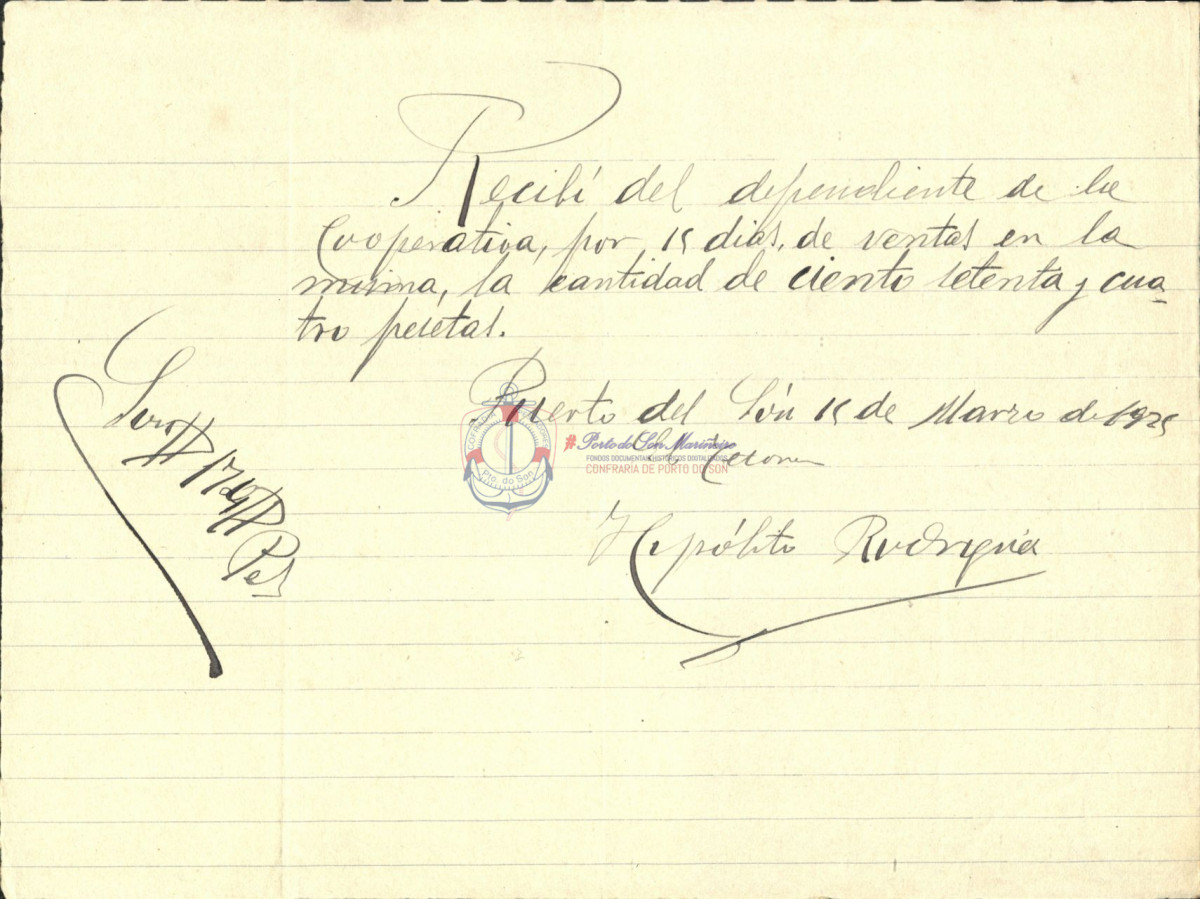 Recibí del dependiente de la
Cooperativa, por 15 dias, de ventas en la
misma, la cantidad de ciento setenta y cua-
tro pesetas.
Puerto del Són 15 de Marzo de 1925
El Tesorero
Hipólito Rodriguez
Son # 174 # Pts
COFRADIA PESCADORES
Pto. do Son
#Porto do Son Mariñeiro
FONDOS DOCUMENTAIS HISTÓRICOS DIXITALIZADOS
CONFRARÍA DE PORTO DO SON